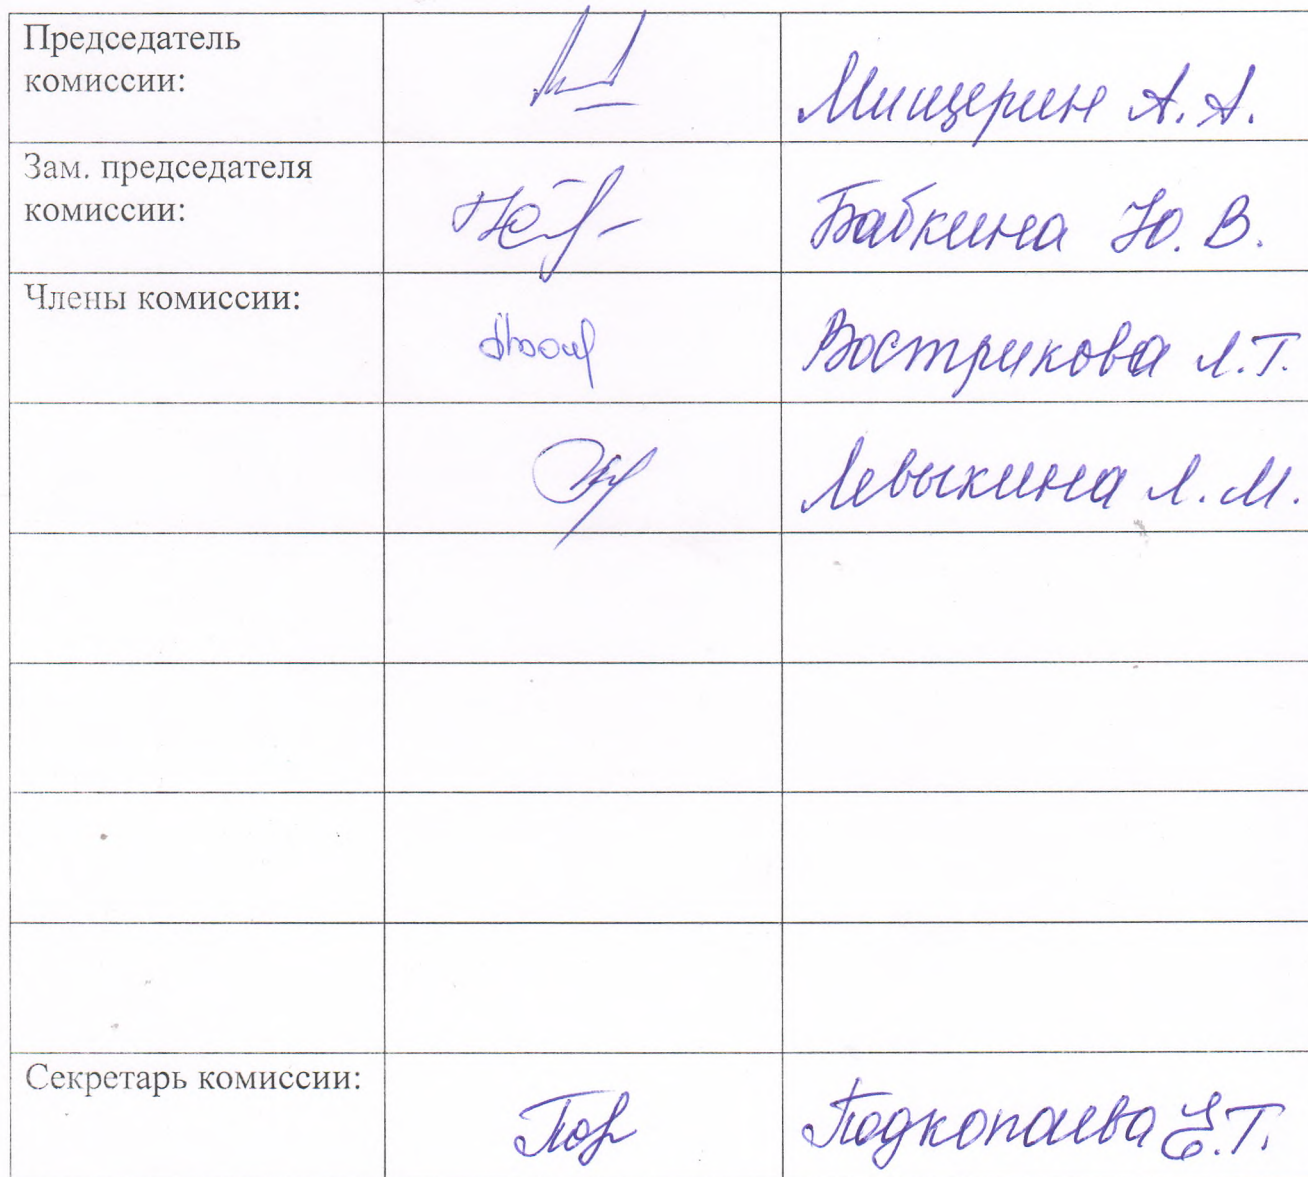 Председатель
комиссии:
Мищерин А. А.
Зам. председателя
комиссии:
Бабкина Ю. В.
Члены комиссии:
Вострикова Л.Т.
Левыкина Л. М.
Секретарь комиссии:
Подкопаева Е.Т.